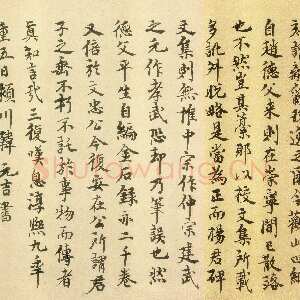 自趙德父來則在崇寧間已散落
也不然豈其藁耶以校文集所載
多訛舛脫略是當為正而楊君碑
文集剌無惟中宗作仲宗建武
之元作孝武恐却乃筆誤也然
德父平生自編金石錄亦二千卷
又倍於文忠公今復安在公所謂君
子之垂不朽不託於事物而傳者
真知言哉三復嘆息淳熙九年
重五日潁川韓元吉書
Shufawang.cn